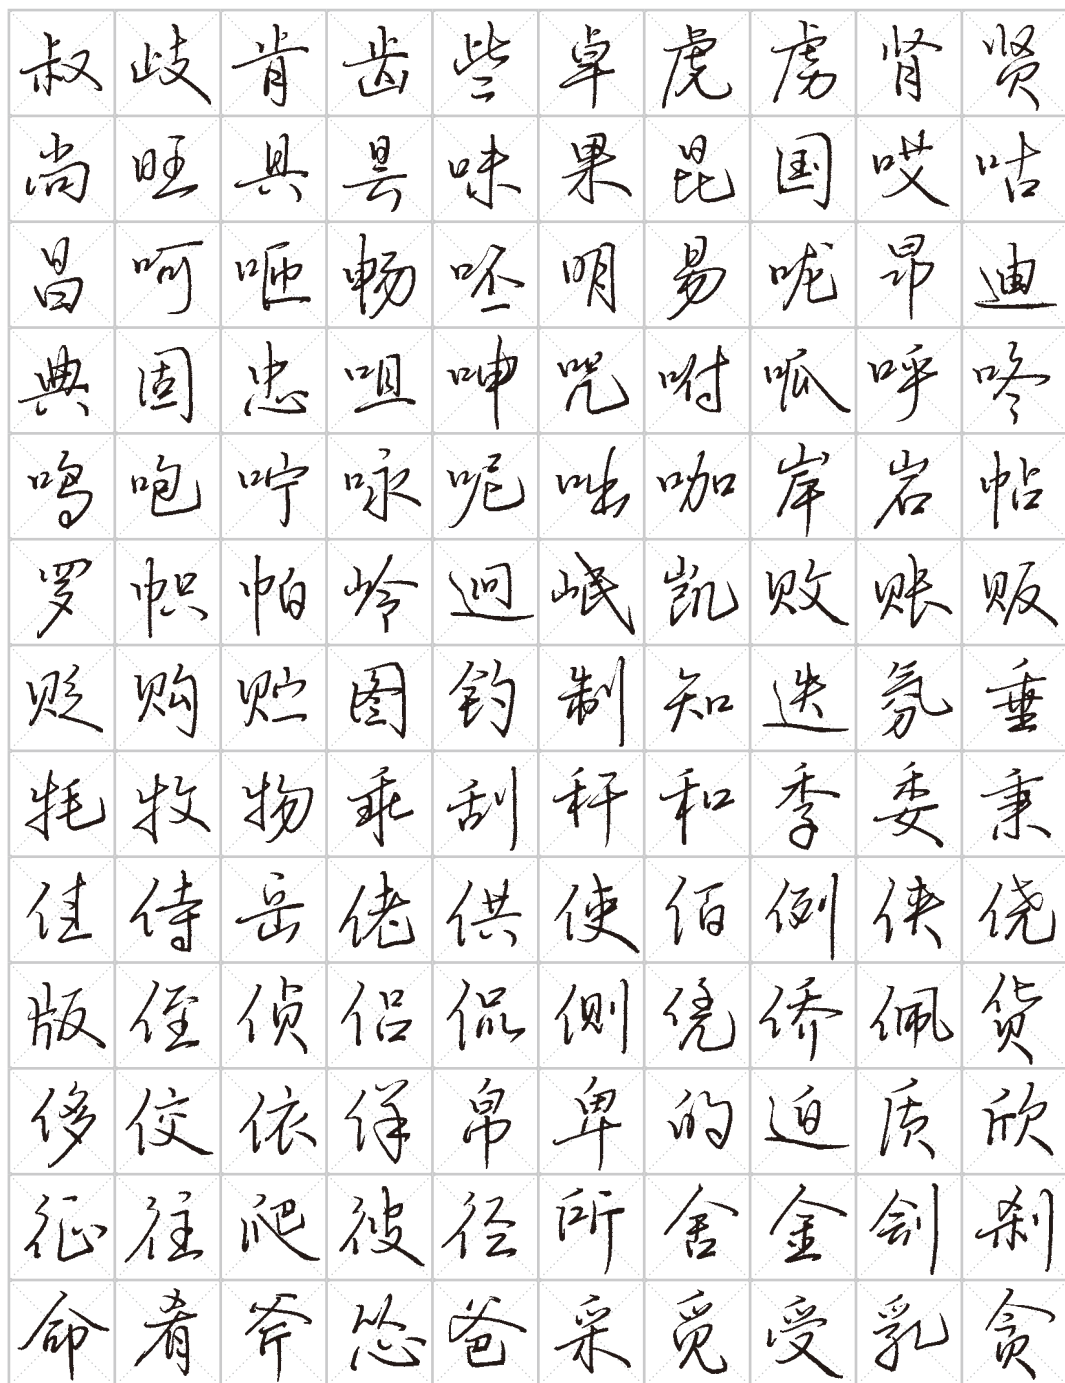 叔歧肯齿些卓虎虏肾贤
尚旺具昙味果昆国哎咕
昌呵咂畅呸明易咙昂迪
典固忠咀呻咒咐呱呼咚
鸣咆咛咏呢咄咖岸岩帖
罗帜帕岭迥岷凯败账贩
贬购贮图钓制知迭氛垂
牦牧物乖刮秆和季委秉
佳侍岳佬供使佰例侠侥
版侄侦侣侃侧凭侨佩货
侈佼依佯帛卑的迫质欣
征往爬彼径所舍金刽刹
命肴斧怂爸采觅受乳贪